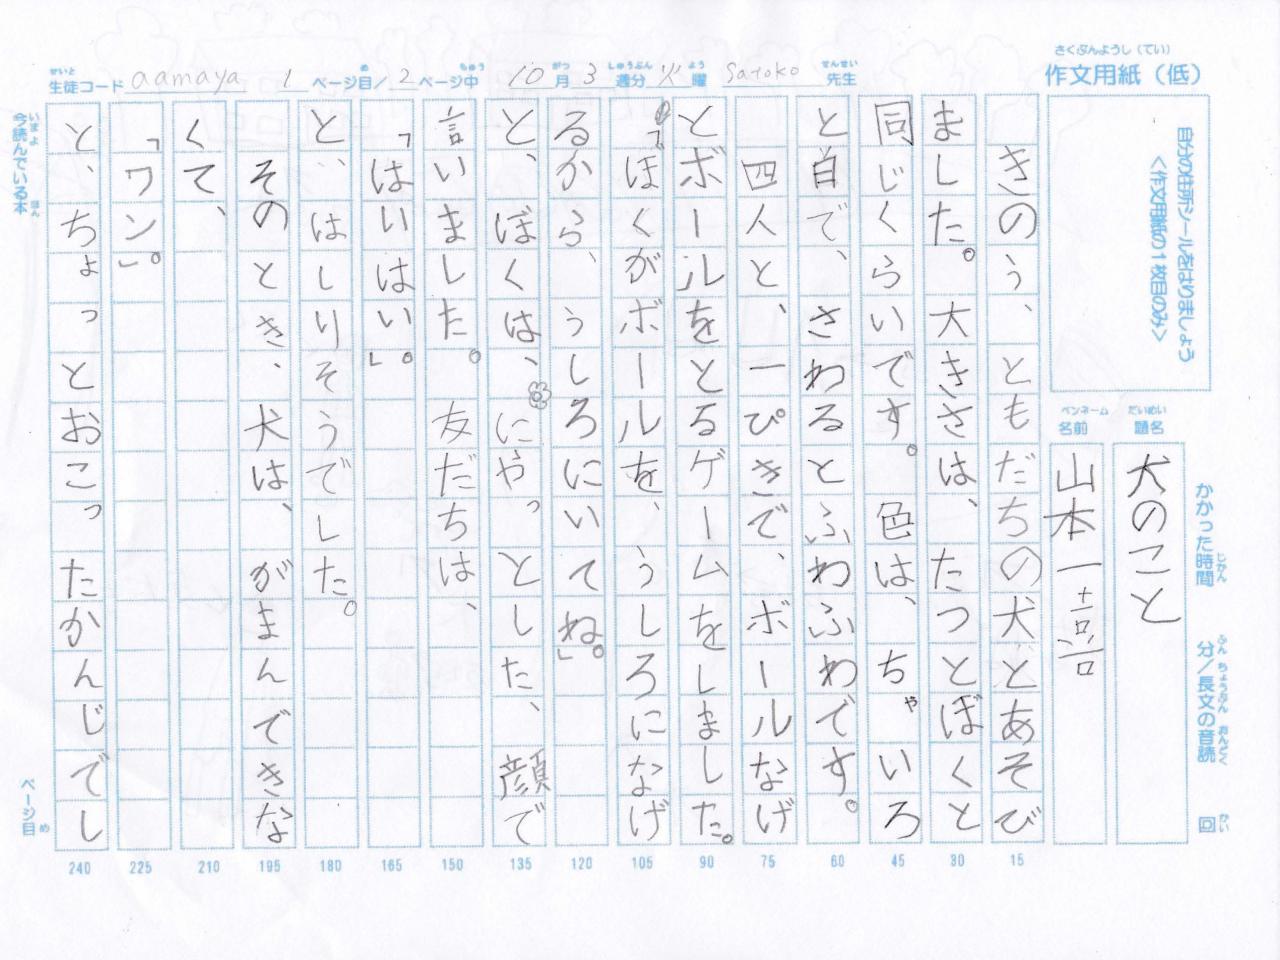 さくぶんようし（てい）
作文用紙（低）
せいと
生徒コード aamaya 1 ページ目／2 ページ中 10 月 3 週分 火 曜 Satoko 先生
め ちゅう がつ しゅうぶん よう せんせい
自分の住所シールをはりましょう
＜作文用紙の1枚目のみ＞
だいめい
題名
犬のこと
ペンネーム
名前
山本 一喜
かかった時間 分／長文の音読 回
じかん ふん ちょうぶん おんどく かい
きのう、ともだちの犬とあそび
ました。大きさは、たつとぼくと
同じくらいです。色は、ちゃいろ
と白で、さわるとふわふわです。
四人と、一ぴきで、ボールなげ
とボールをとるゲームをしました。
「ぼくがボールを、うしろになげ
るから、うしろにいてね」。
と、ぼくは、にやっとした、顔で
言いました。友だちは、
「はいはい」。
と、はしりそうでした。
そのとき、犬は、がまんできな
くて、
「ワン」。
と、ちょっとおこったかんじでし
15
30
45
60
75
90
105
120
135
150
165
180
195
210
225
240
いまよ ほん
今読んでいる本
ページ目
め